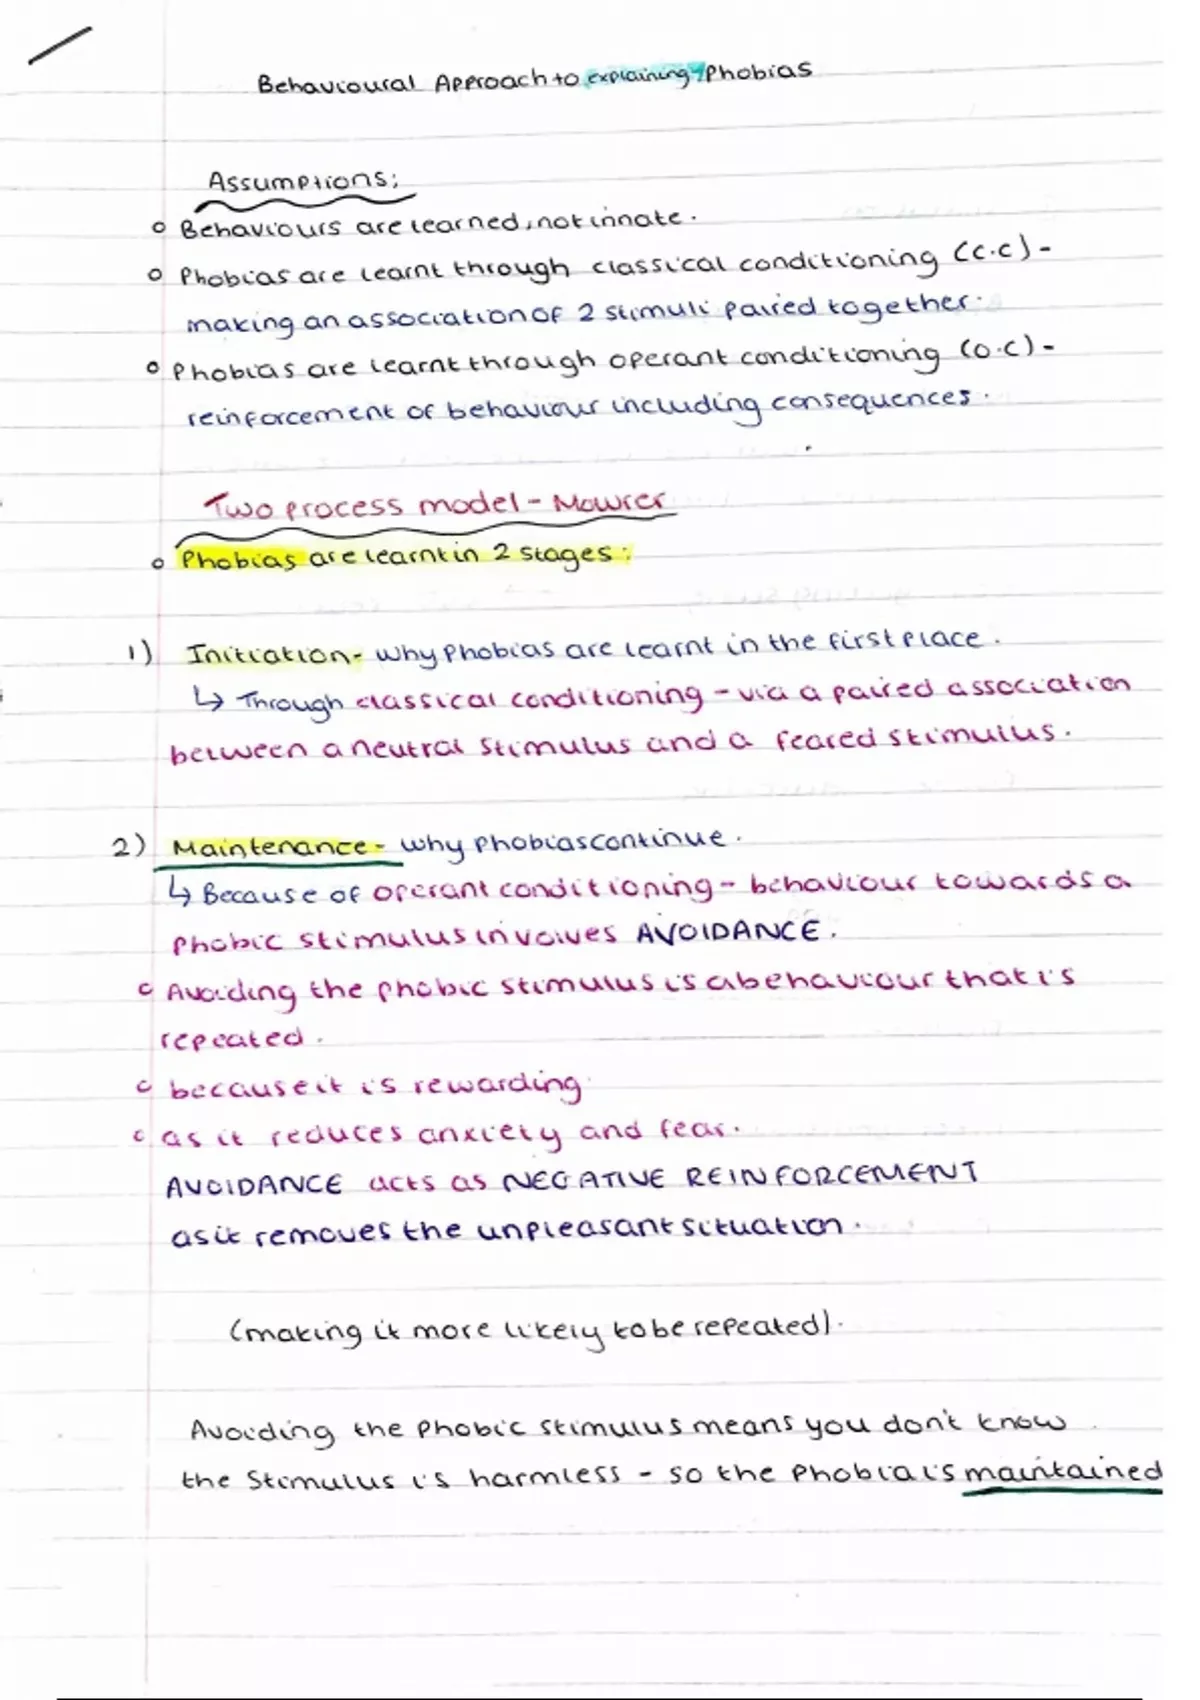 Behavioural Approach to explaining Phobias
Assumptions:
Behaviours are learned, not innate.
Phobias are learnt through classical conditioning (C.C) -
making an association of 2 stimuli paired together.
Phobias are learnt through operant conditioning (O.C) -
reinforcement of behaviour including consequences.
Two process model - Mowrer
Phobias are learnt in 2 stages:
1) Initiation - why phobias are learnt in the first place.
↳ Through classical conditioning - via a paired association
between a neutral stimulus and a feared stimulus.
2) Maintenance - why phobias continue.
↳ Because of operant conditioning - behaviour towards a
phobic stimulus involves AVOIDANCE.
Avoiding the phobic stimulus is a behaviour that is
repeated.
because it is rewarding.
as it reduces anxiety and fear.
AVOIDANCE acts as NEGATIVE REINFORCEMENT
as it removes the unpleasant situation.
(making it more likely to be repeated).
Avoiding the phobic stimulus means you don't know
the stimulus is harmless - so the phobia is maintained